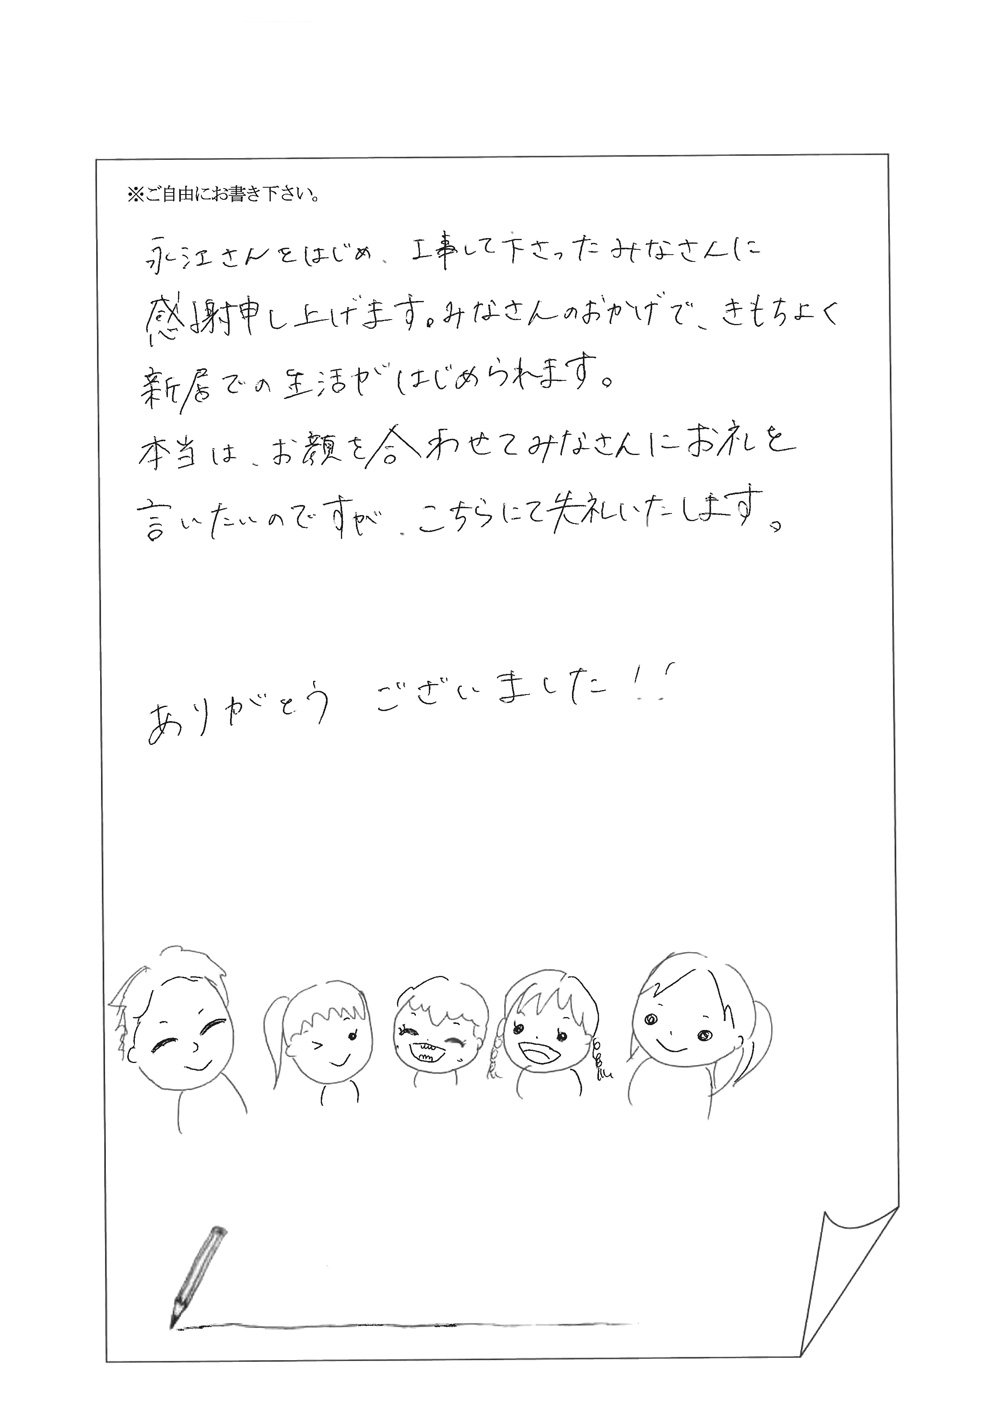 ※ご自由にお書き下さい。
永江さんをはじめ、工事して下さったみなさんに
感謝申し上げます。みなさんのおかげで、きもちよく
新居での生活がはじめられます。
本当は、お顔を合わせてみなさんにお礼を
言いたいのですが、こちらにて失礼いたします。
ありがとう ございました!!